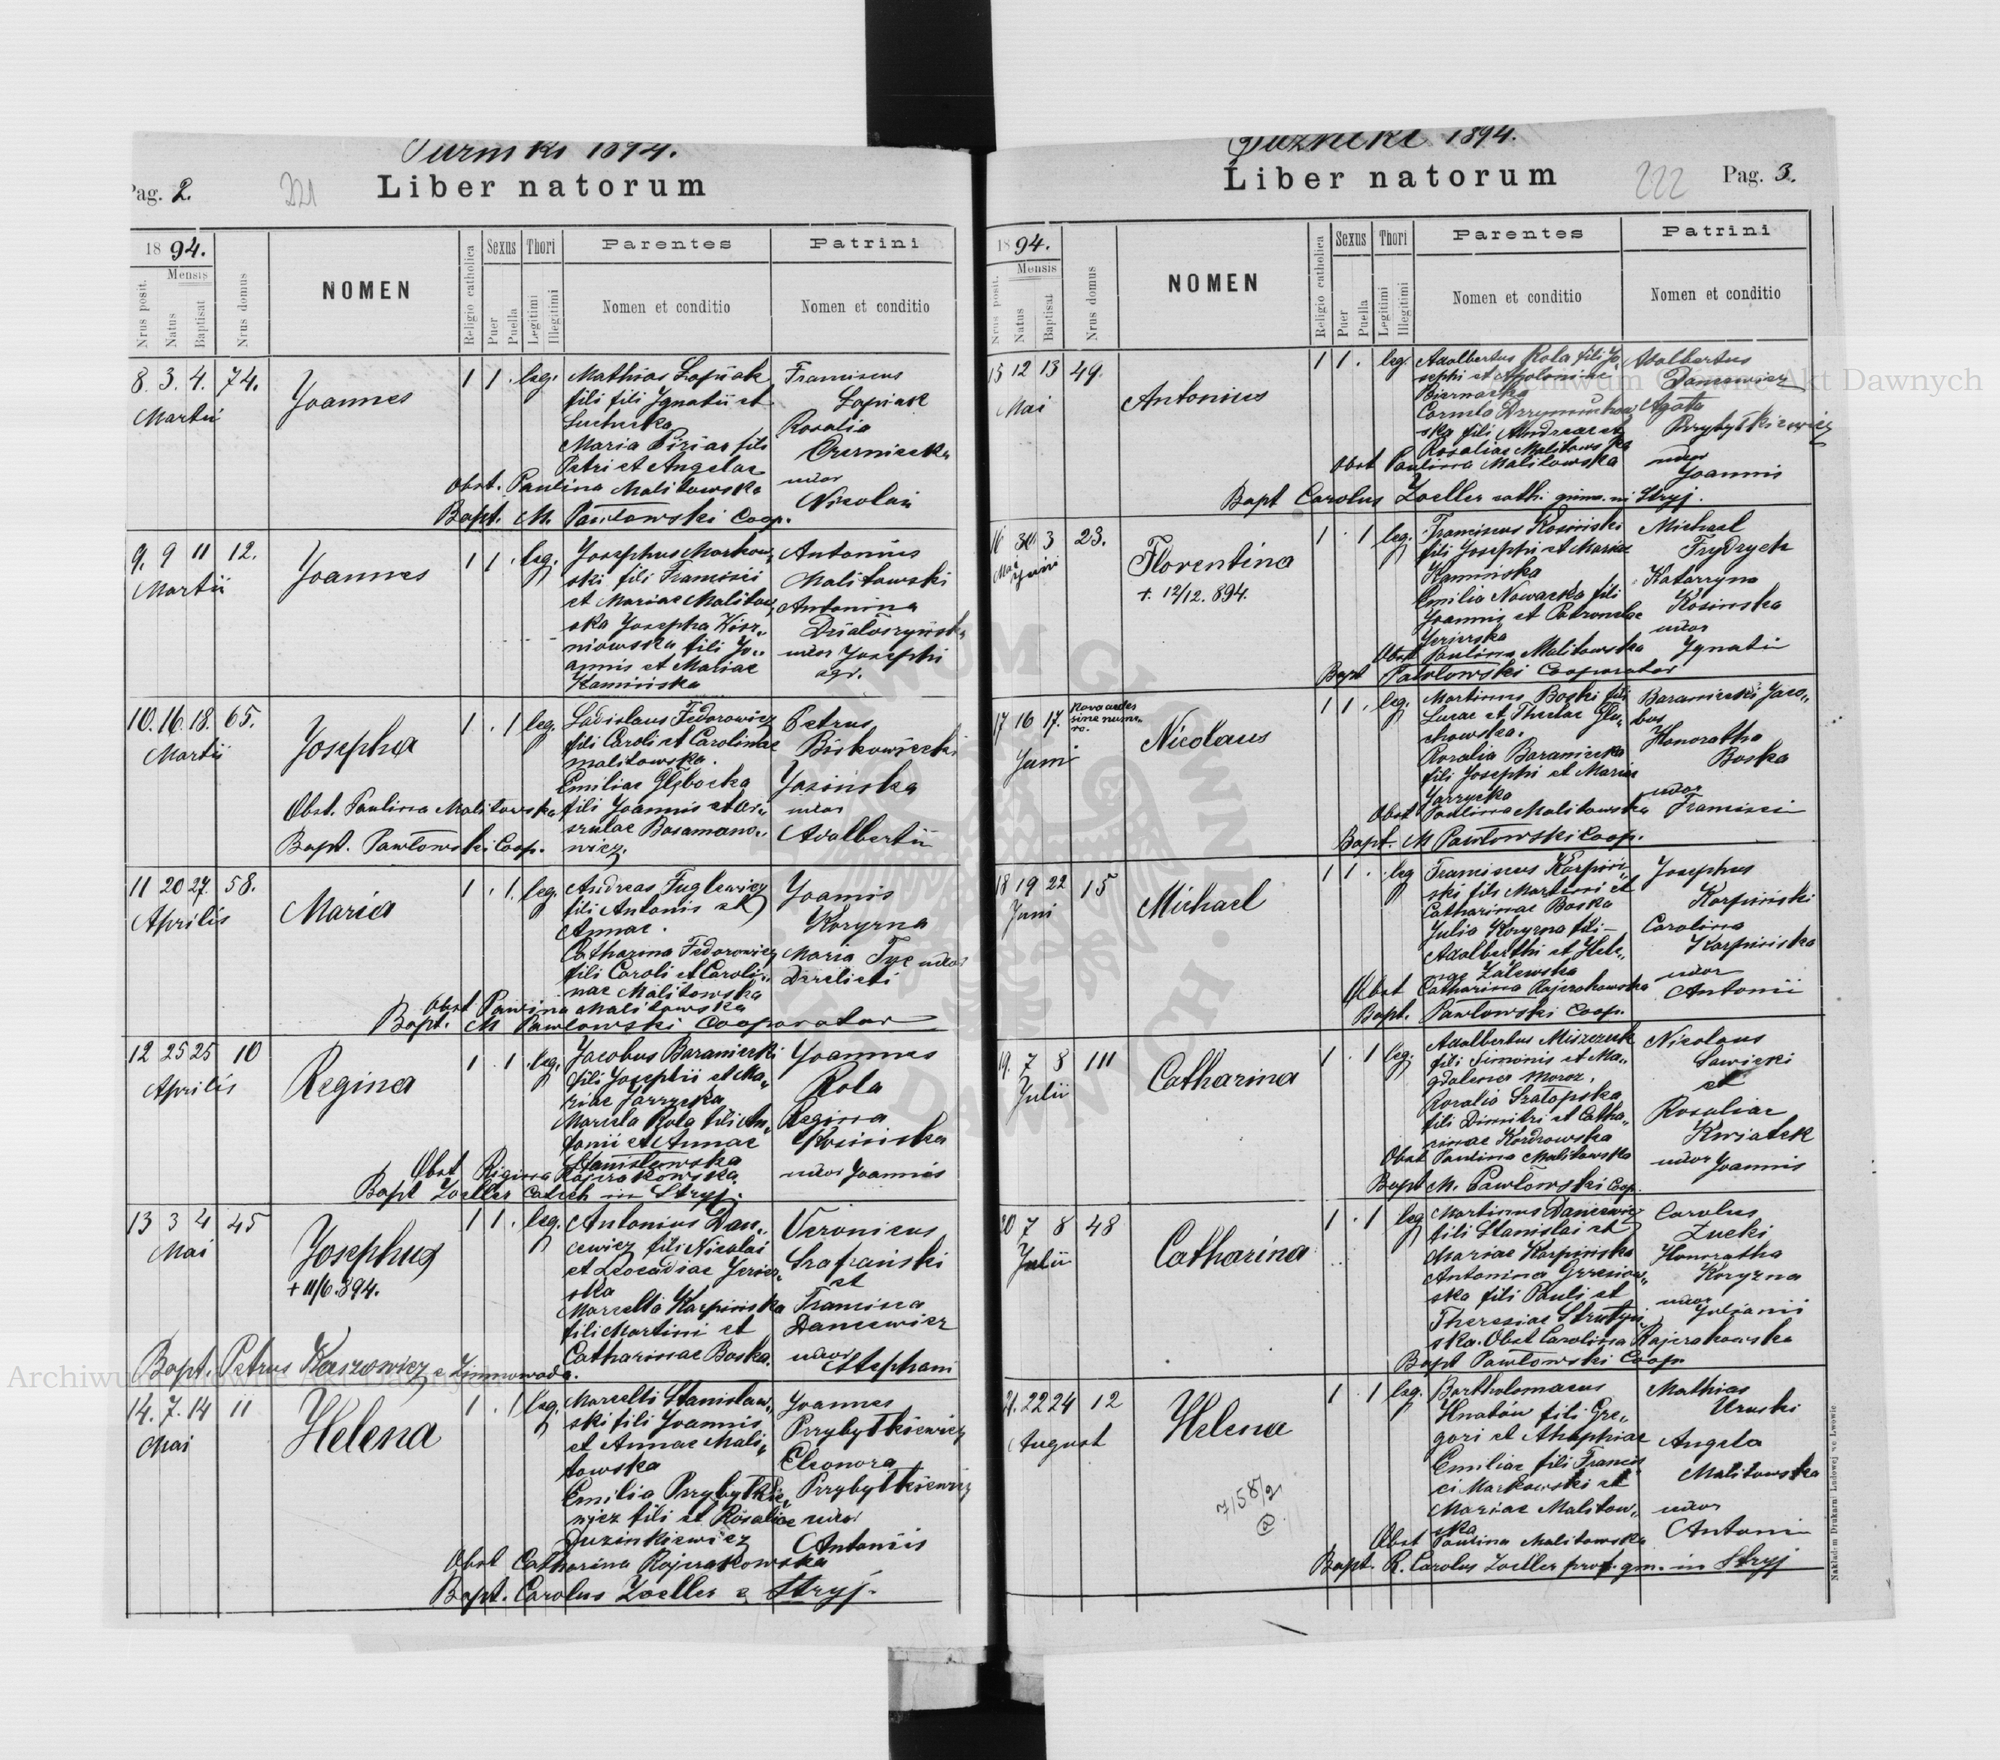 1894.
Pag. 2.
221
Liber natorum
1894.
Mensis
Nrus posit.
Natus
Baptisat
Nrus domus
NOMEN
Religio catholica
Sexus
Puer
Puella
Thori
Legitimi
Illegitimi
Parentes
Nomen et conditio
Patrini
Nomen et conditio
8. 3. 4. 74.
Martii
Joannes
1 1 . leg.
Mathias Łapiak
fili fili Ignatii et
Maria
Petri et Angelae
Franciscus
Łapiak
Rosalia
uxor
Nicolai
Obst. Paulina Malitowska
Bapt. M. Pawłowski Coop.
9. 9 11 12.
Martii
Joannes
1 1 . leg.
Josephus Markow,
ski fili Francisci
et Mariae Malitow,
ska Josepha
niowska fili Jo,,
annis et Mariae
Kamińska
Antonius
Malitowski
Antonina
uxor Josephi
agr.
10. 16. 18. 65.
Martii
Josepha
1 . 1 leg.
Ladislaus Fedorowicz
fili Caroli et Carolinae
malitowska.
Emiliae Głębocka
fili Joannis et Ur,,
szulae Bosamano,,
wicz.
Petrus
Biskowiecki
Josińska
uxor
Adalbertii
Obst. Paulina Malitowska
Bapt. Pawłowski Coop.
11 20 27. 58.
Aprilis
Maria
1 . 1. leg.
Andreas Fuglewicz
fili Antonis et
Annae.
Catharina Fedorowicz
fili Caroli et Caroli,,
nae Malitowska
Joannis
Koryzna
Maria Tyc uxor
derelicti
Obst Pawina Malitowska
Bapt. M Pawłowski Cooperator
12 25 25 10
Aprilis
Regina
1 . 1 . leg.
Jacobus Baraniecki
fili Josephi et Ma,,
riae Jarzycka
Marcela Rola fili An,
tonii et Annae
Stanisławska
Joannes
Rola
Regina
uxor Joannis
Obst Regina Rajzrakowska.
Bapt Zoeller Catech in Stryj.
13 3 4 45
Mai
Josephus
+ 11/6. 894.
1 1 . leg.
Antonius Dan,,
cewicz fili Nicolai
et Leocadiae Jezier,,
ska
Marcella Karpińska
fili Martini et
Catharinae Boska.
Veronicus
Szafański
et
Francisca
Dancewicz
uxor
Stephani
Bapt. Petrus Kaszowicz e Zimnowoda.
14. 7. 14 11
Mai
Helena
1 . 1 leg.
Marcelli Stanisław,,
ski fili Joannis
et Annae Mali,,
towska
Emilia Przybyłkie,,
wicz fili et Rosaliae
Duzinkiewicz
Joannes
Przybyłkiewicz
Eleonora
Przybyłkiewicz
uxor
Antoniis
Obst Catharina Rajzrakowska
Bapt. Carolus Zoeller e Stryj.
1894.
Liber natorum
222
Pag. 3.
1894.
Mensis
Nrus posit.
Natus
Baptisat
Nrus domus
NOMEN
Religio catholica
Sexus
Puer
Puella
Thori
Legitimi
Illegitimi
Parentes
Nomen et conditio
Patrini
Nomen et conditio
15 12 13 49.
Mai
Antonius
1 1 . leg.
Adalbertus Rola fili Jo,
sephi et Apoloniae
Biernacka
ska fili Andreae et
Rosaliae Malitowska
Adalbertus
Dancewicz
Agata
Przybyłkiewicz
uxor
Joannis
Obst Paulina Malitowska
Bapt Carolus Zoeller cath. gimn. in Stryj.
16 30 3 23.
Mai Juni
Florentina
+. 12/12. 894.
1 . 1 leg.
Franciscus Kosiński
fili Josephi et Mariae
Kamińska
Emilia Nowacka fili
Joannis et Petronelae
Jezierska
Michael
Frydrych
Katarzyna
Kosińska
uxor
Ignatii
Obst Paulina Malitowska
Bapt Pawłowski Cooperator
17 16 17. Nova aedes
sine nume,
ro.
Juni
Nicolaus
1 1 . leg.
Martinus Boski fili
Lucae et Theclae Glu,
chowska.
Rosalia Baraniecka
fili Josephi et Mariae
Jarzycka
Baraniecki Jaco,,
bus
Honoratha
Boska
uxor
Francisci
Obst Paulina Malitowska
Bapt. M Pawłowski Coop.
18 19 22 15
Juni
Michael
1 1 . leg
Franciscus Karpiń,,
ski fili Martini et
Catharinae Boska
Julia Koryzna fili
Adalberthi et Hele,,
nae Zalewska
Josephus
Karpiński
Carolina
Karpińska
uxor
Antonii
Obst Catharina Rajzrakowska
Bapt. Pawłowski Coop.
19. 7 8 111
Julii
Catharina
1 . 1 leg.
Adalbertus Miszczuk
fili Simonis et Ma,,
gdalena Moroz.
Rozalia Szatopska
fili Dimitri et Catha,,
rinae Kordrowska
Nicolaus
Sawicki
et
Rosaliae
Kwiatek
uxor Joannis
Obst Paulina Malitowska
Bapt M. Pawłowski Coop.
20 7 8 48
Julii
Catharina
1 . 1 leg
Martinus Dancewicz
fili Stanislai et
Mariae Karpińska
Antonina Grzesiow,,
ska fili Pauli et
Theresiae Strutyń
ska. Obst Carolina Rajzrakowska
Carolus
Żucki
Honoratha
Koryzna
uxor
Julianii
Bapt Pawłowski Coop.
21. 22 24 12
August
Helena
1 . 1 leg.
Bartholomaeus
Hnatów fili Gre,,
gori et Ahaphiae
Emiliae fili Francis
ci Markowski et
Mariae Malitow,,
ska
Mathias
Uruski
Angela
Malitowska
uxor
Antoni
7158/2
Obst Paulina Malitowska
Bapt. R. Carolus Zoeller prof. gm. in Stryj
Nakładem Drukarni Ludowej we Lwowie.
Archiwum Główne Akt Dawnych
Archiwum Główne Akt Dawnych
ARCHIWUM GŁÓWNE AKT DAWNYCH